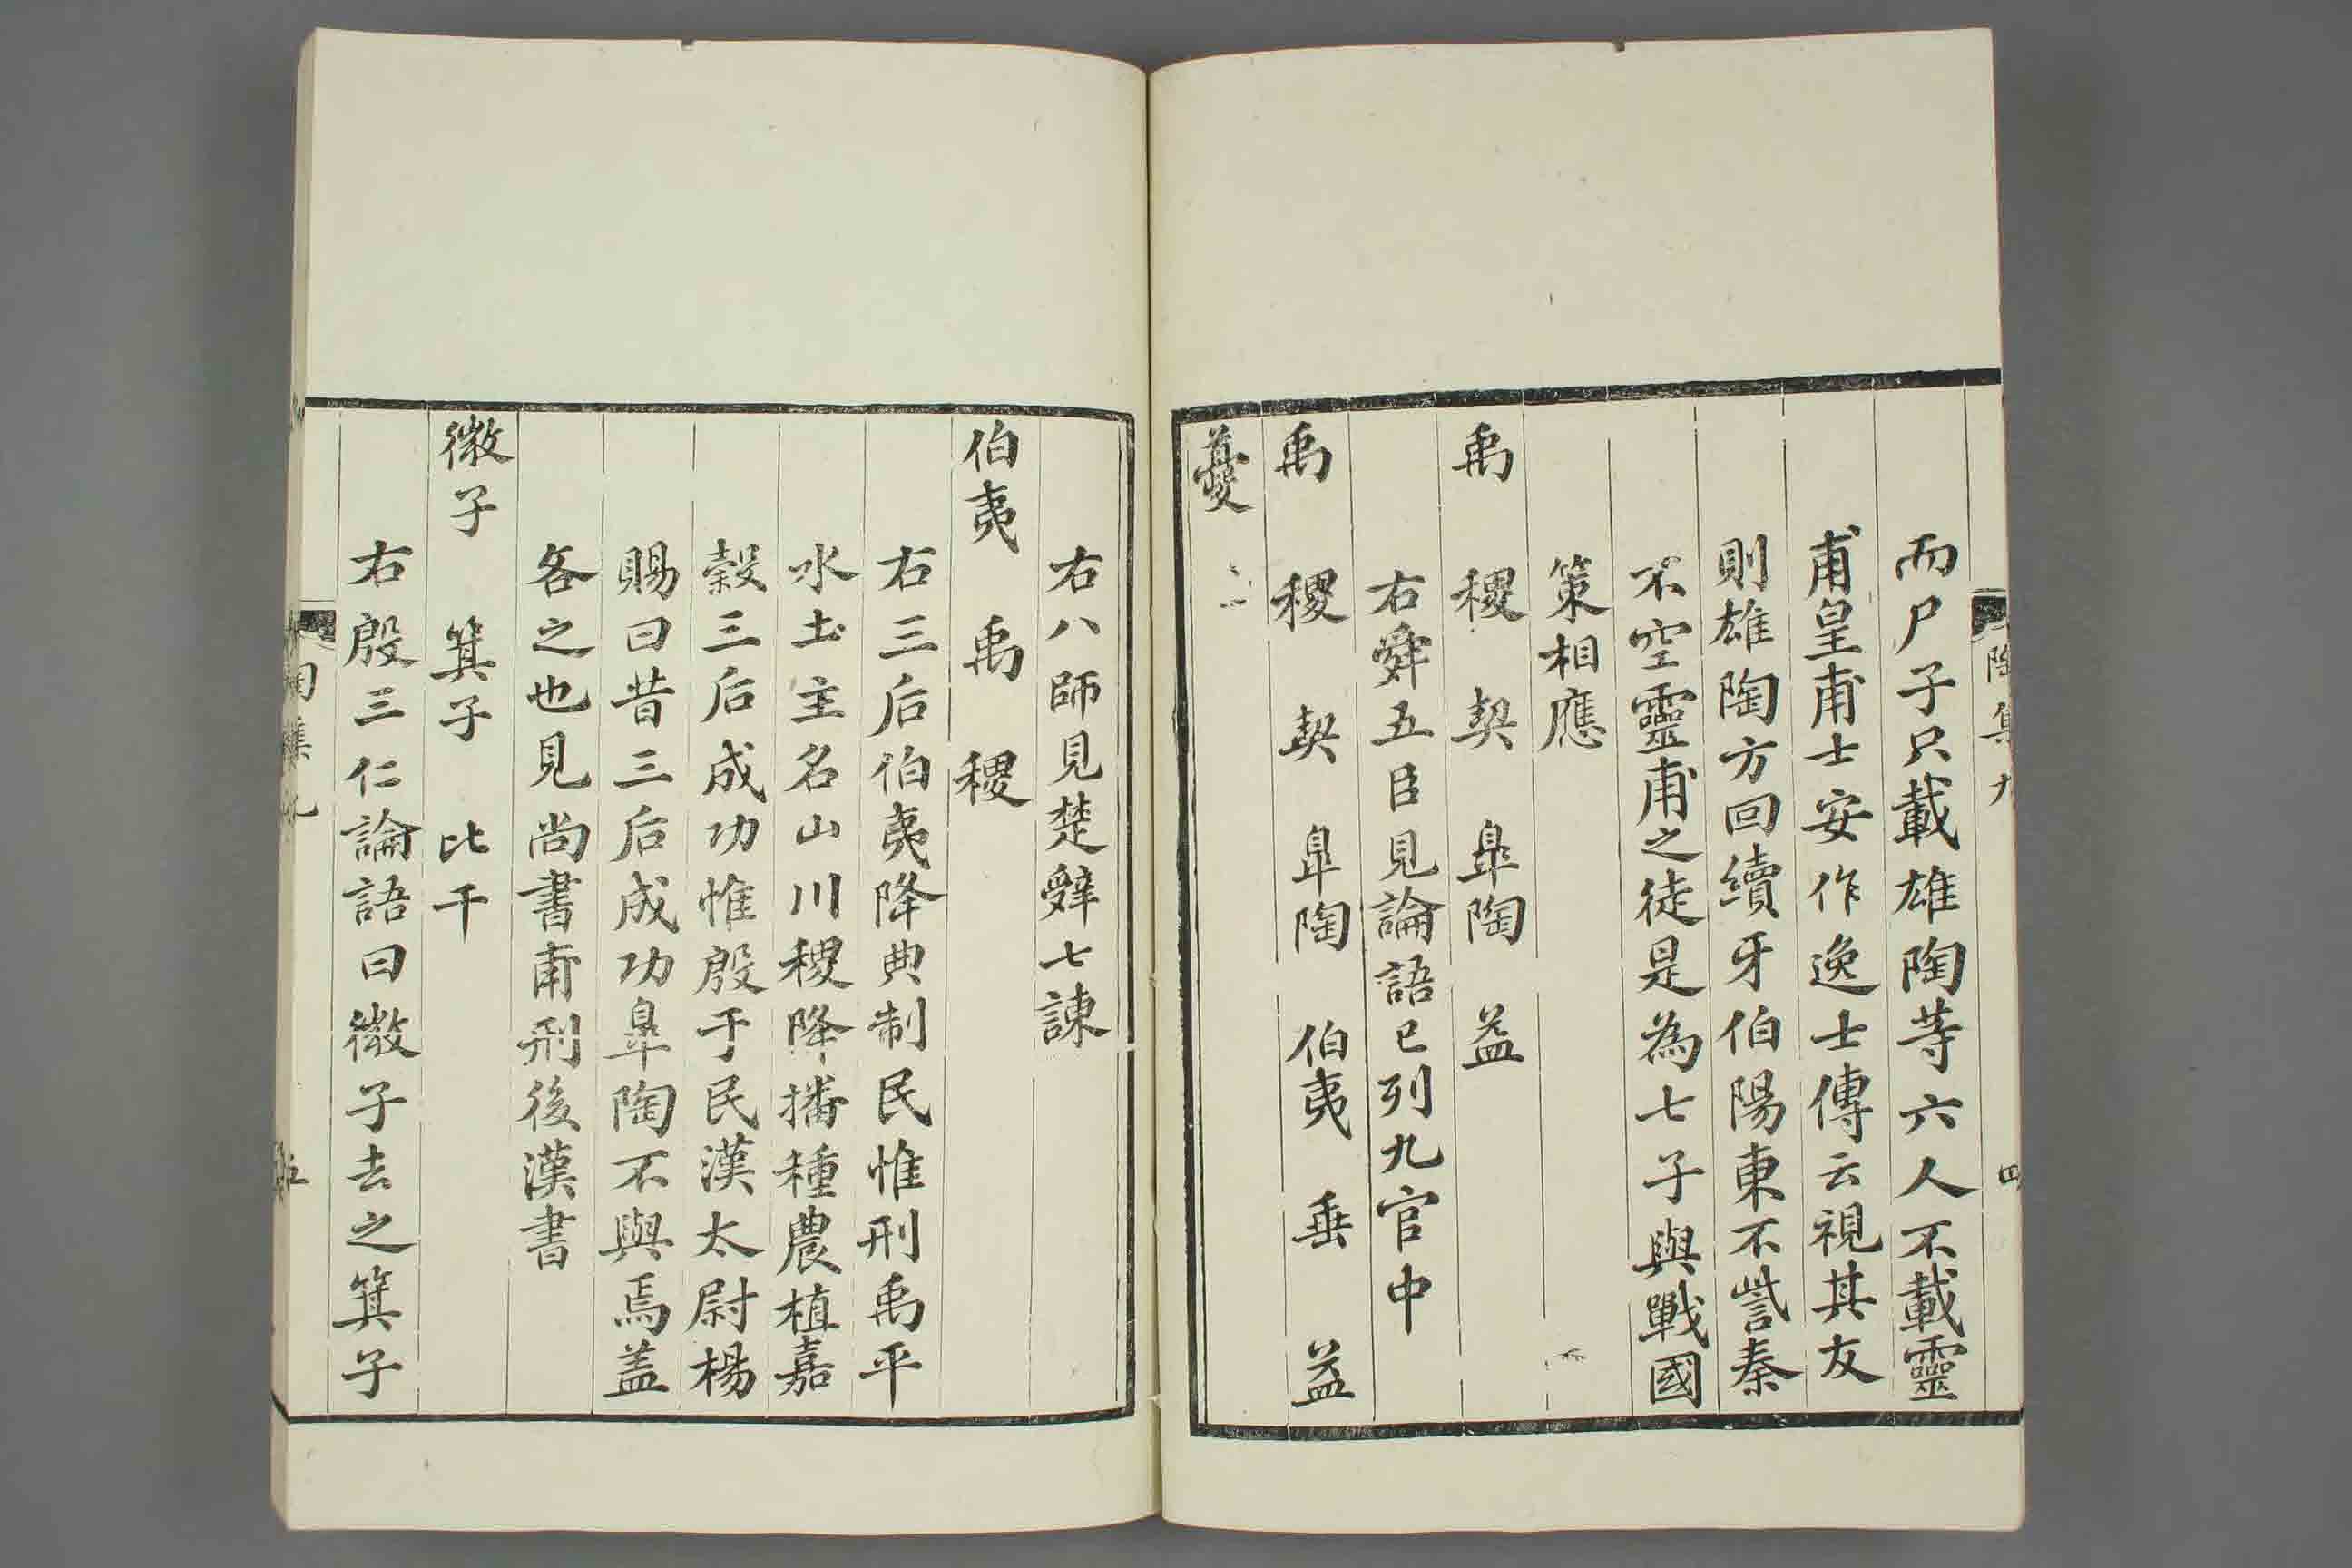 陶集九
四
而尸子只載雄陶等六人不載靈
甫皇甫士安作逸士傳云視其友
則雄陶方回續牙伯陽東不訾秦
不空靈甫之徒是為七子與戰國
策相應
禹 稷 契 臯陶 益
右舜五臣見論語已列九官中
禹 稷 契 臯陶 伯夷 垂 益
夔
右八師見楚辭七諫
伯夷 禹 稷
右三后伯夷降典制民惟刑禹平
水土主名山川稷降播種農植嘉
穀三后成功惟殷于民漢太尉楊
賜曰昔三后成功臯陶不與焉盖
各之也見尚書甫刑後漢書
微子 箕子 比干
右殷三仁論語曰微子去之箕子
陶集九
五